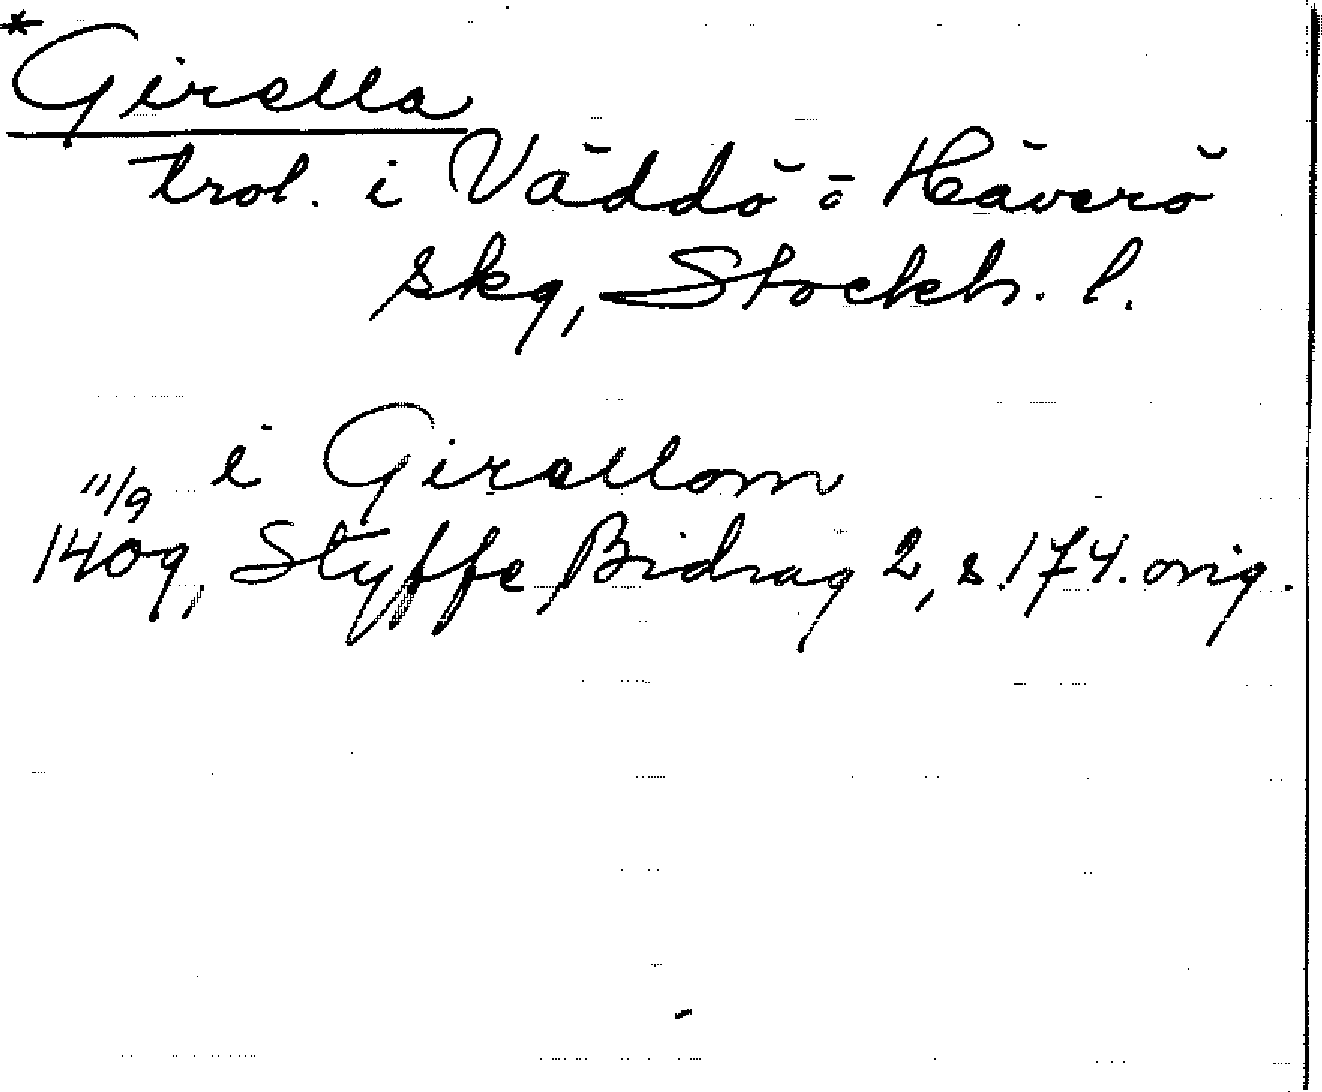 *Girella
trol. i Väddö o Häverö
skg, Stockh. l.
i Girellom
11/9
1409, Styffe Bidrag 2, s. 174. orig.